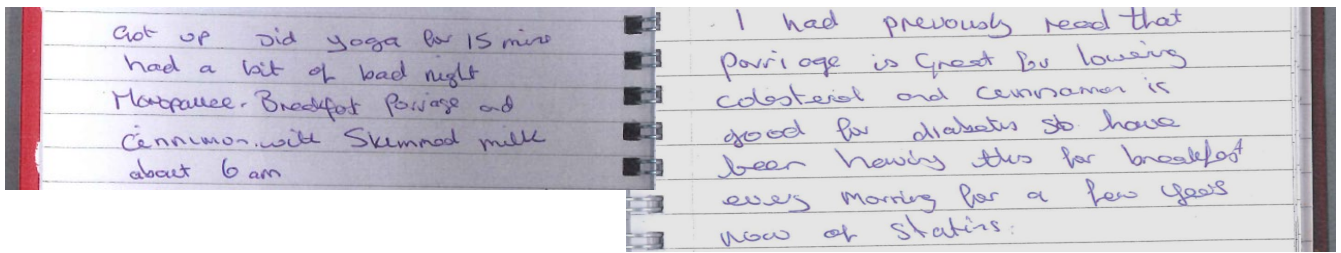 Got up Did yoga for 15 mins
had a bit of bad night
Menopause. Breakfast Porriage and
Cennimon. with Skimmed milk
about 6 am
I had prevously read that
Porriage is Great for lowering
colesterol and cennamon is
good for diabetes so have
been having this for breakfast
every Morning for a few years
now of Statins.